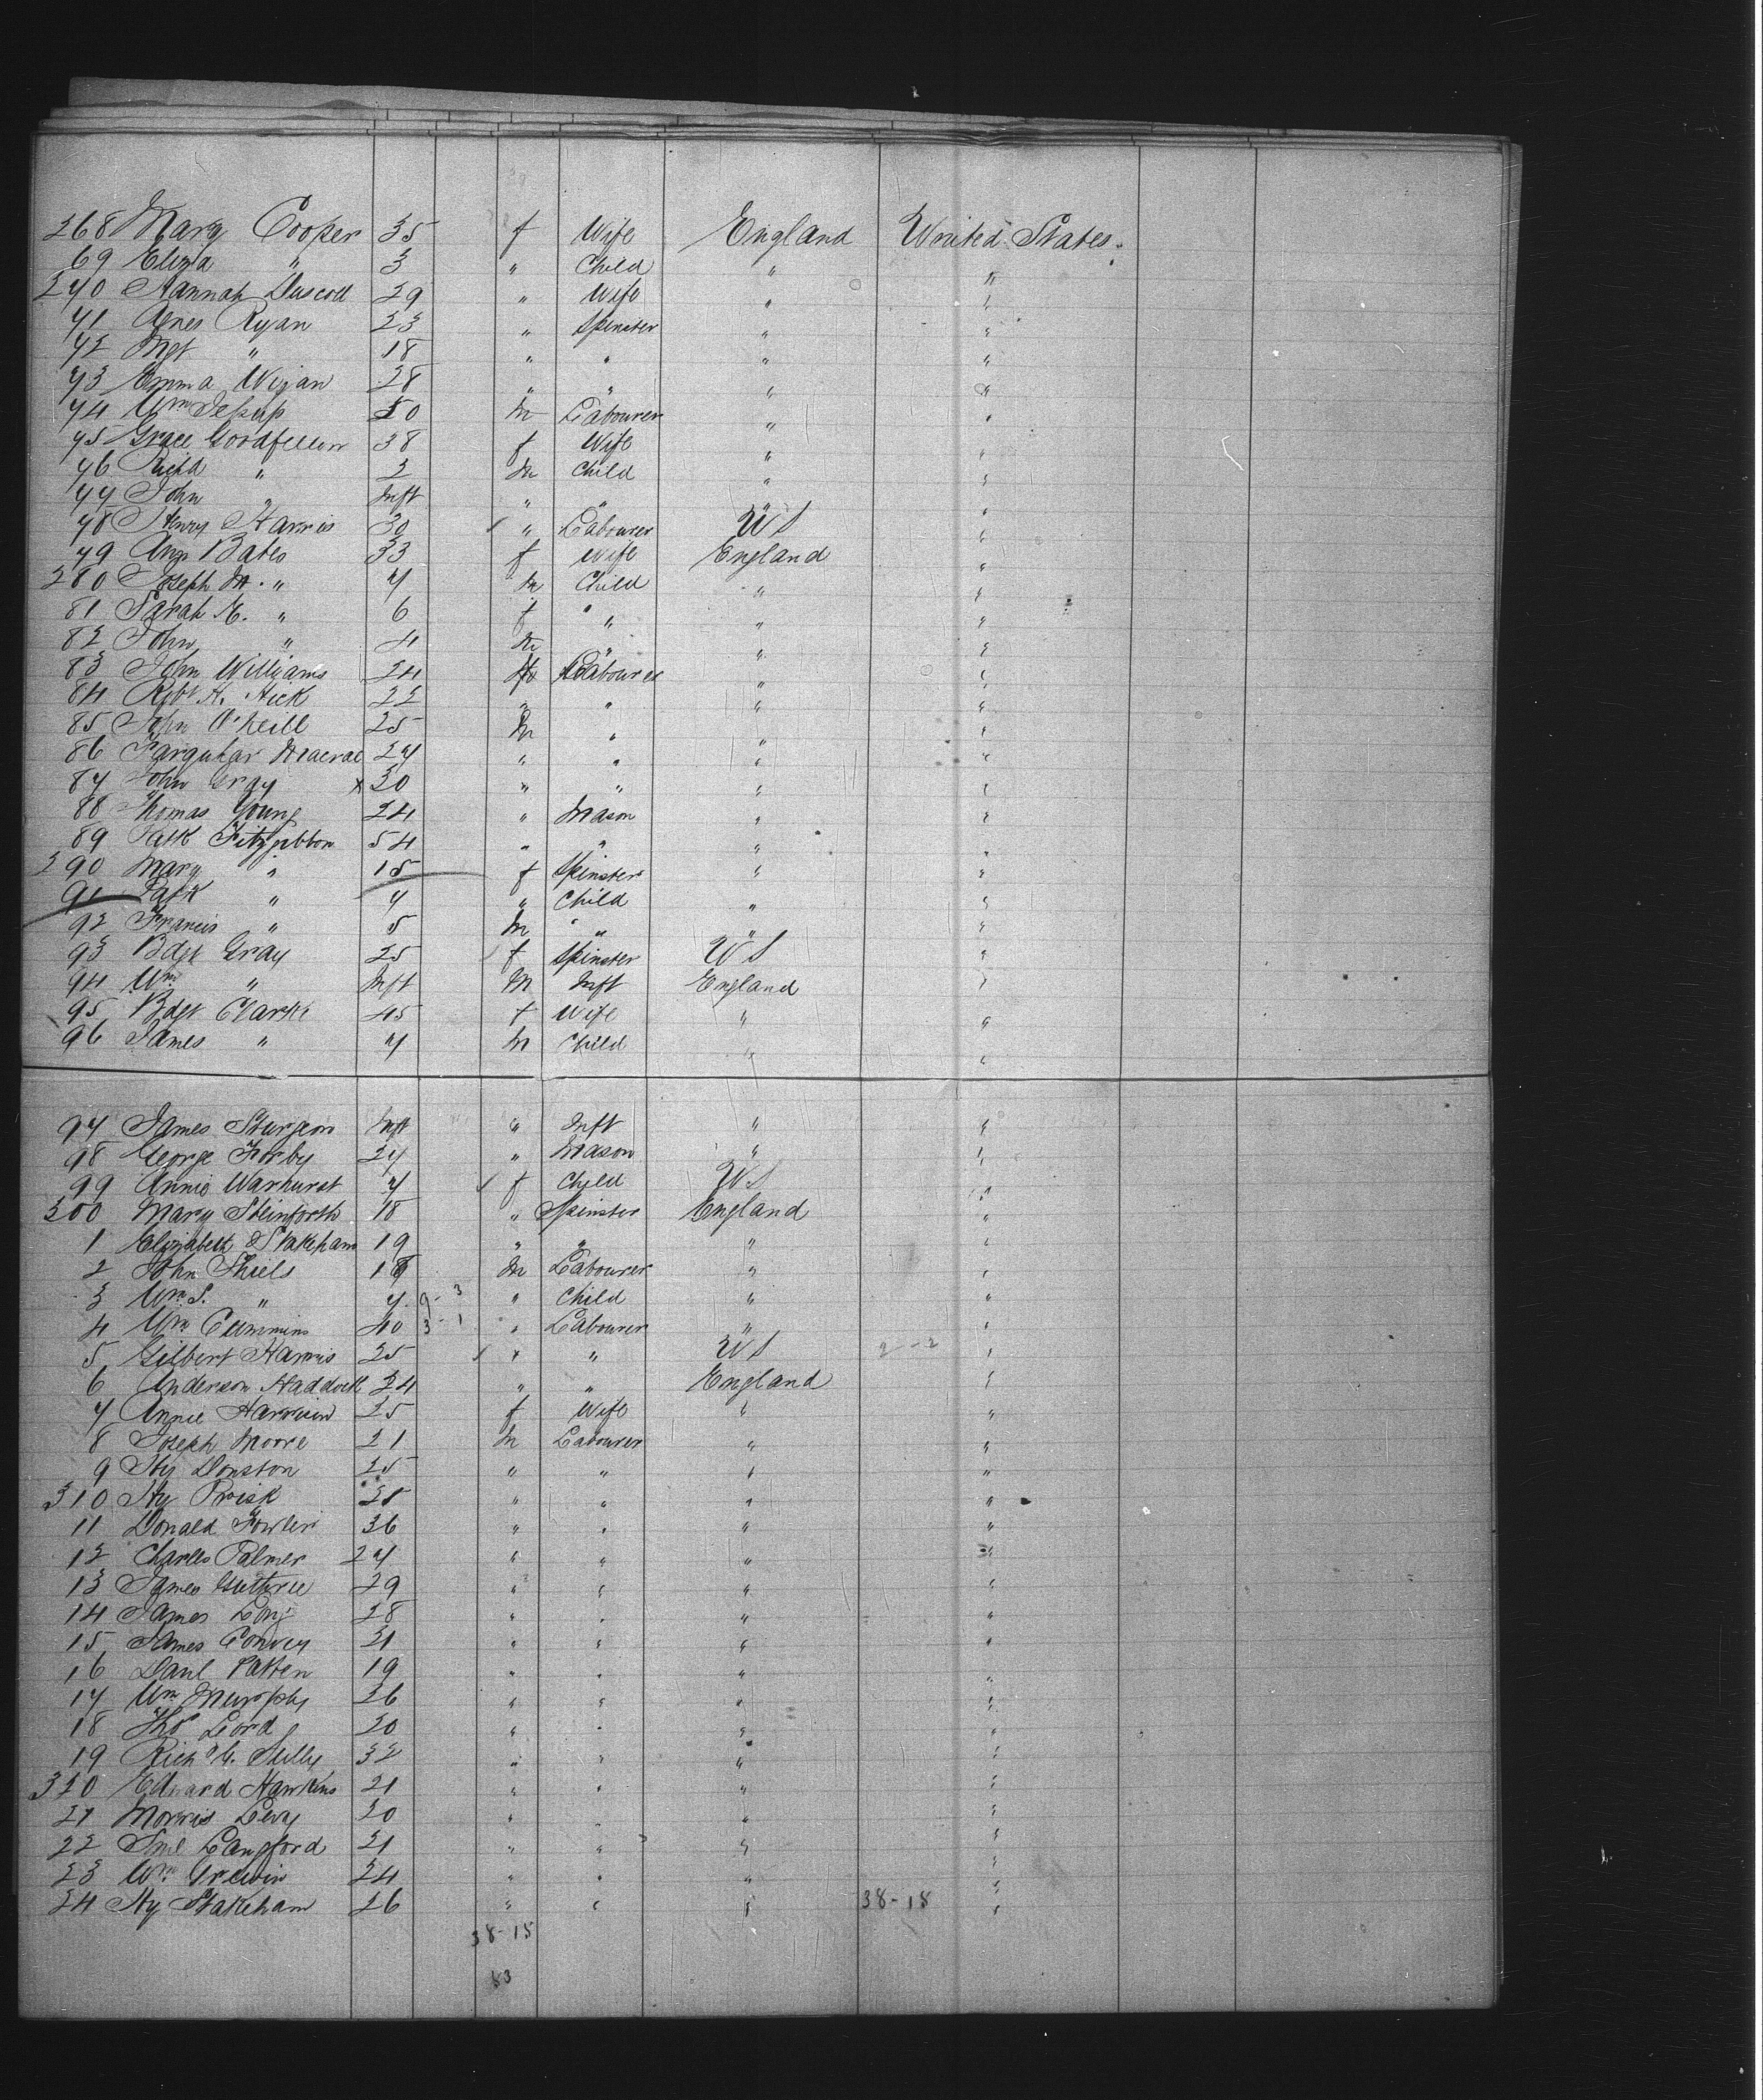 268 Mary Cooper 35 f Wife England United States.
69 Eliza " 3 " Child " "
270 Hannah Duscoll 29 " Wife " "
71 Agnes Ryan 23 " Spinster " "
72 Mgt " 18 " " " "
73 Emma Wigan 28 " " " "
74 Wm Jessup 50 m Labourer " "
75 Grace Goodfellow 38 f Wife " "
76 Richd " 2 m Child " "
77 John " Inft " " " "
78 Henry Harris 30 " Labourer US "
79 Ann Bates 33 f Wife England "
280 Joseph M. " 7 m Child " "
81 Sarah E. " 6 f " " "
82 John " 4 m " " "
83 John Williams 24 Labourer " "
84 Robt H. Hick 22 " " " "
85 John O'Neill 25 m " " "
86 Farquhar Macrae 27 " " " "
87 John Gray x 30 " " " "
88 Thomas Young 24 " Mason " "
89 Patk Fitzgibbon 54 " " " "
290 Mary " 15 f Spinster " "
91 Patk " 7 " Child " "
92 Francis " 5 m " " "
93 Bdgt Gray 25 f Spinster US "
94 Wm " Inft m Inft England "
95 Bdgt Clarke 45 f Wife " "
96 James " 7 m Child " "
97 James Sturgeon Inft " Inft " "
98 George Forby 27 " Mason " "
99 Annie Warhurst 7 f Child US "
300 Mary Steinforth 18 " Spinster England "
1 Elizabeth Stakeham 19 " " " "
2 John Shiels 18 m Labourer " "
3 Wm S. " 7 9-3 " Child " "
4 Wm Cummins 40 3-1 " Labourer " "
5 Gilbert Harris 25 " " US 2-2 "
6 Anderson Haddock 24 " " England "
7 Annie Harrison 25 f Wife " "
8 Joseph Moore 21 m Labourer " "
9 Hy Donston 25 " " " "
310 Hy Prisk 25 " " " "
11 Donald Fowler 36 " " " "
12 Charles Palmer 27 " " " "
13 James Guthrie 29 " " " "
14 James Long 28 " " " "
15 James Convey 21 " " " "
16 Danl Patten 19 " " " "
17 Wm Murphy 26 " " " "
18 Thos Lord 20 " " " "
19 Richd G. Skilly 32 " " " "
320 Edward Hawkins 21 " " " "
21 Morris Levy 20 " " " "
22 Saml Langford 21 " " " "
23 Wm Irewin 24 " " " "
24 Hy Stakeham 26 " " " 38-18 "
38-15
53